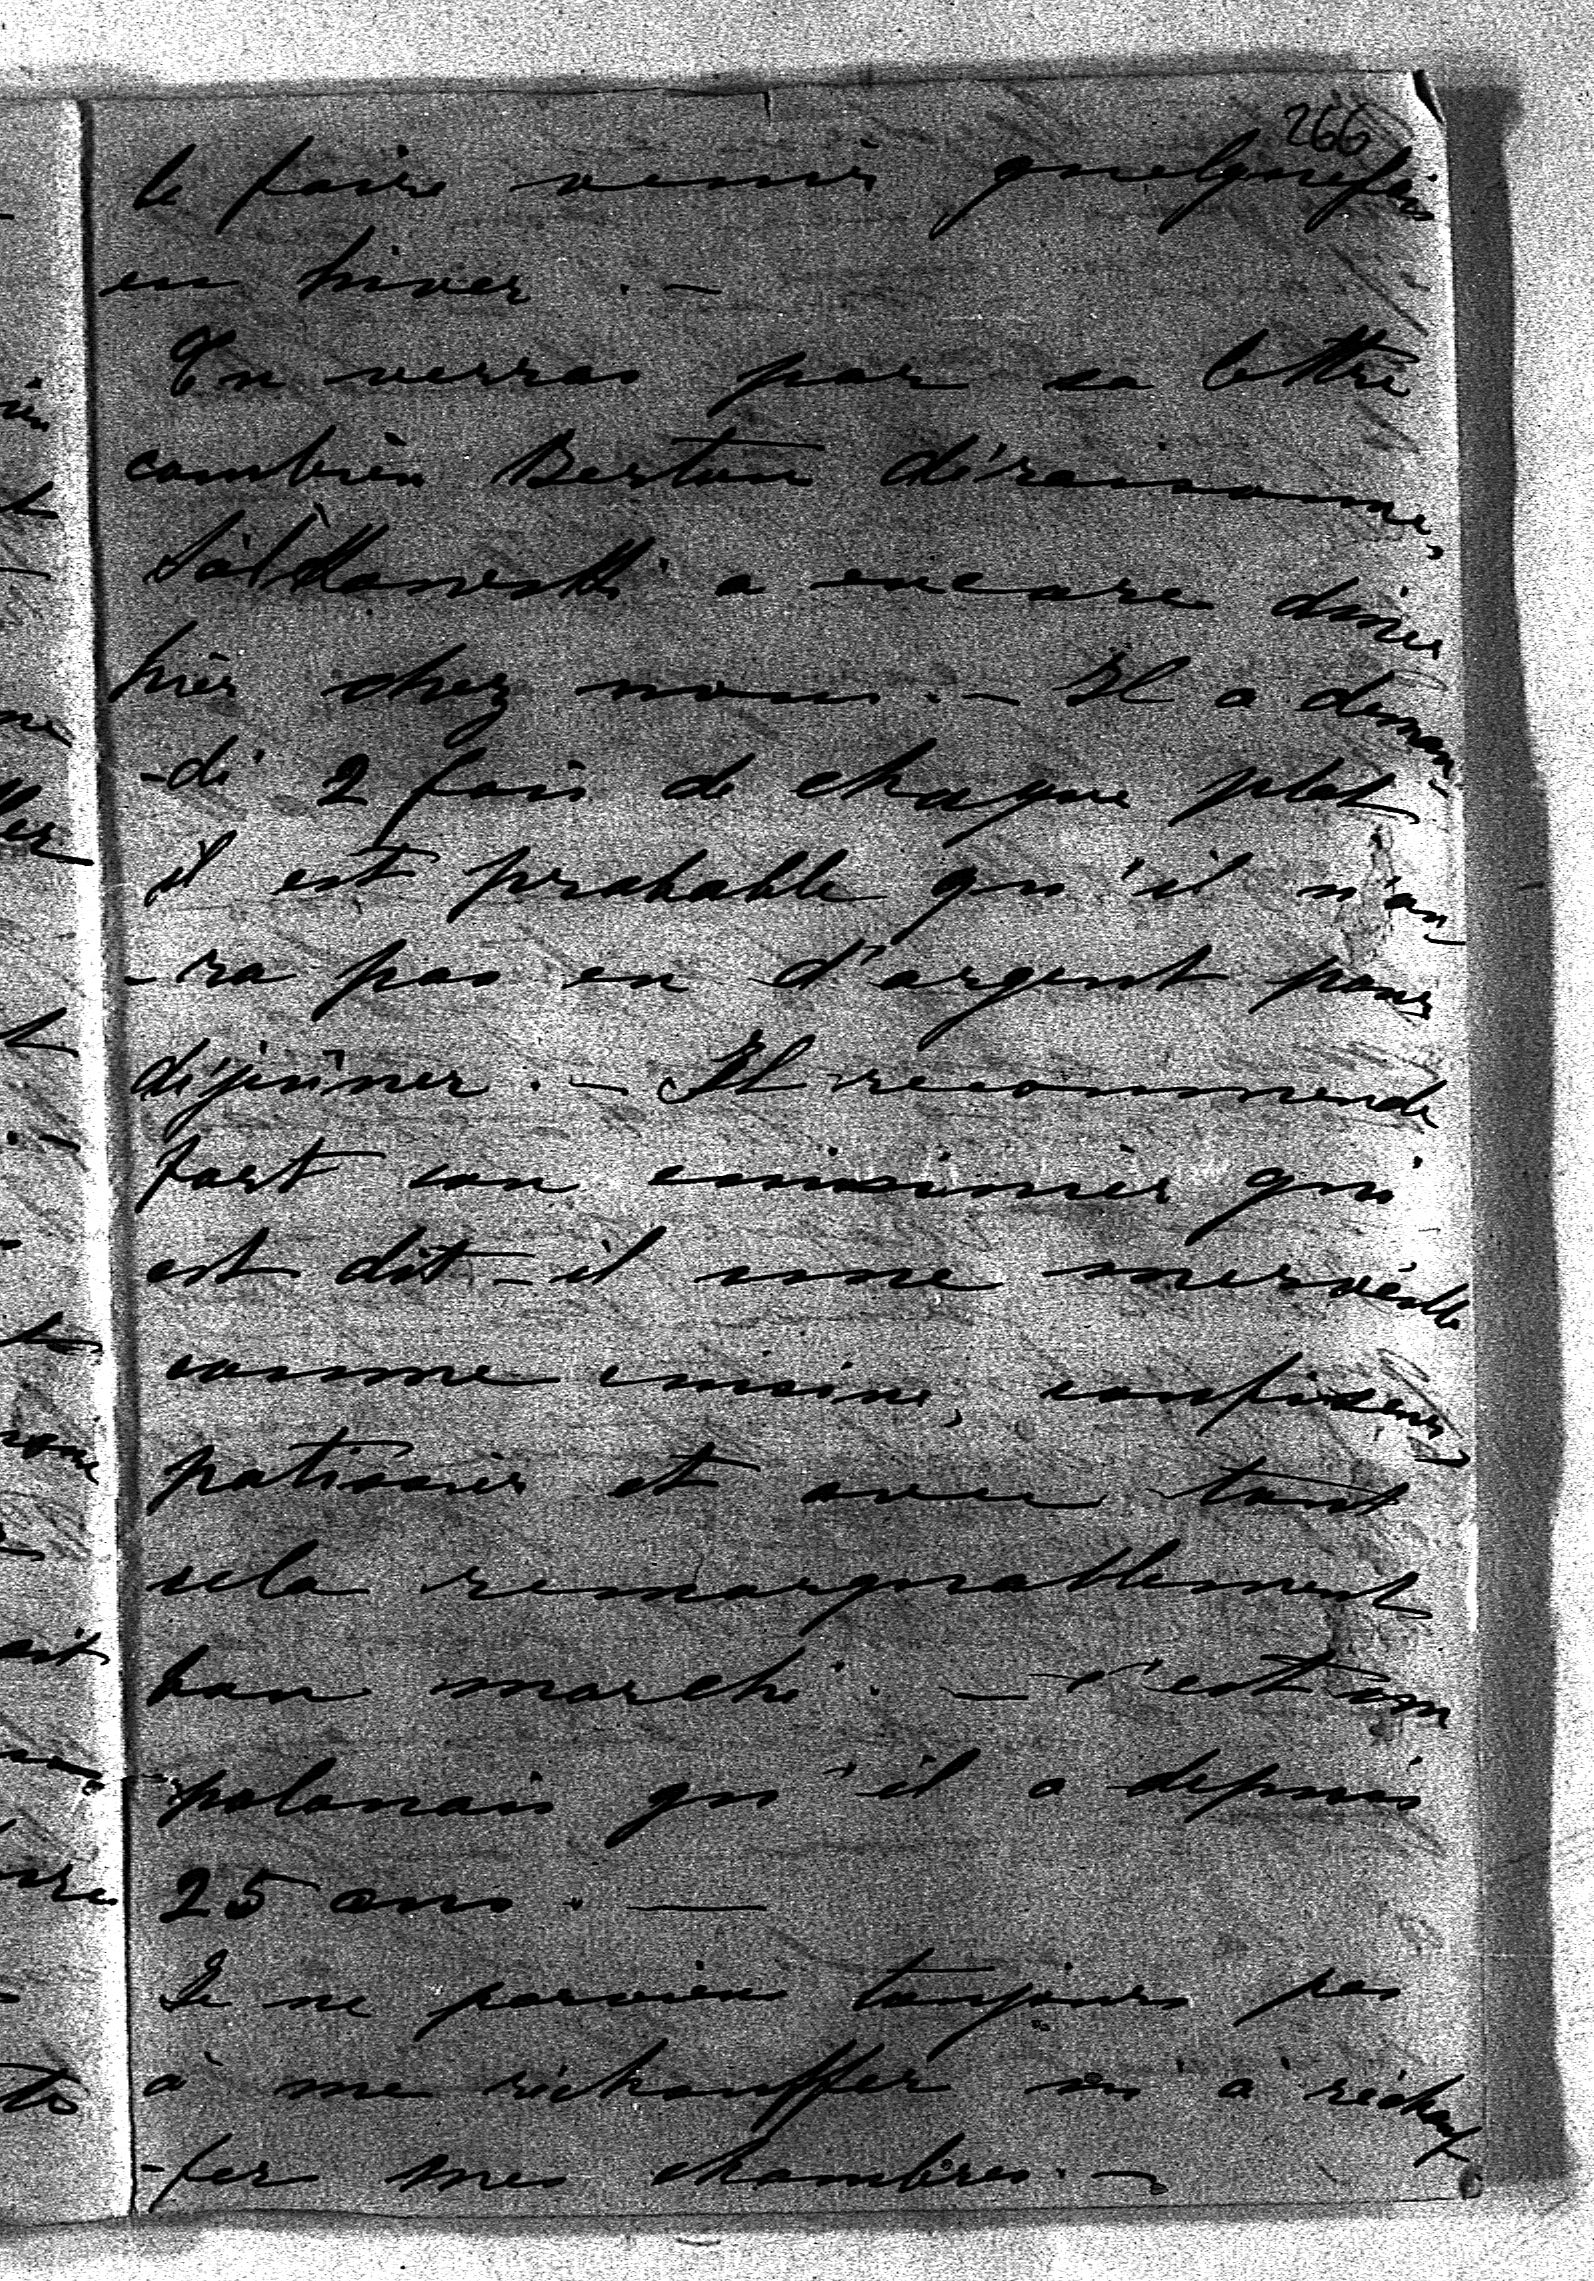 266
le faire venir quelquefois
en hiver. —
Tu verras par sa lettre
combien Bertone déraisonne,
a encore diner
hier chez nous. — Il a deman
-dé 2 fois de chaque plat
il est probable qu'il n'au
-ra pas eu d'argent pour
déjeûner. — Il recommende
fort son cuisinier qui
est dit-il une merveille
comme cuisine, confiseur
patissier et avec tout
cela remarquablement
bon marché. — c'est un
polonais qu'il a depuis
25 ans. —
Je ne parviens toujours pas
à me réchauffer ni à réchauf
-fer mes chambres. —